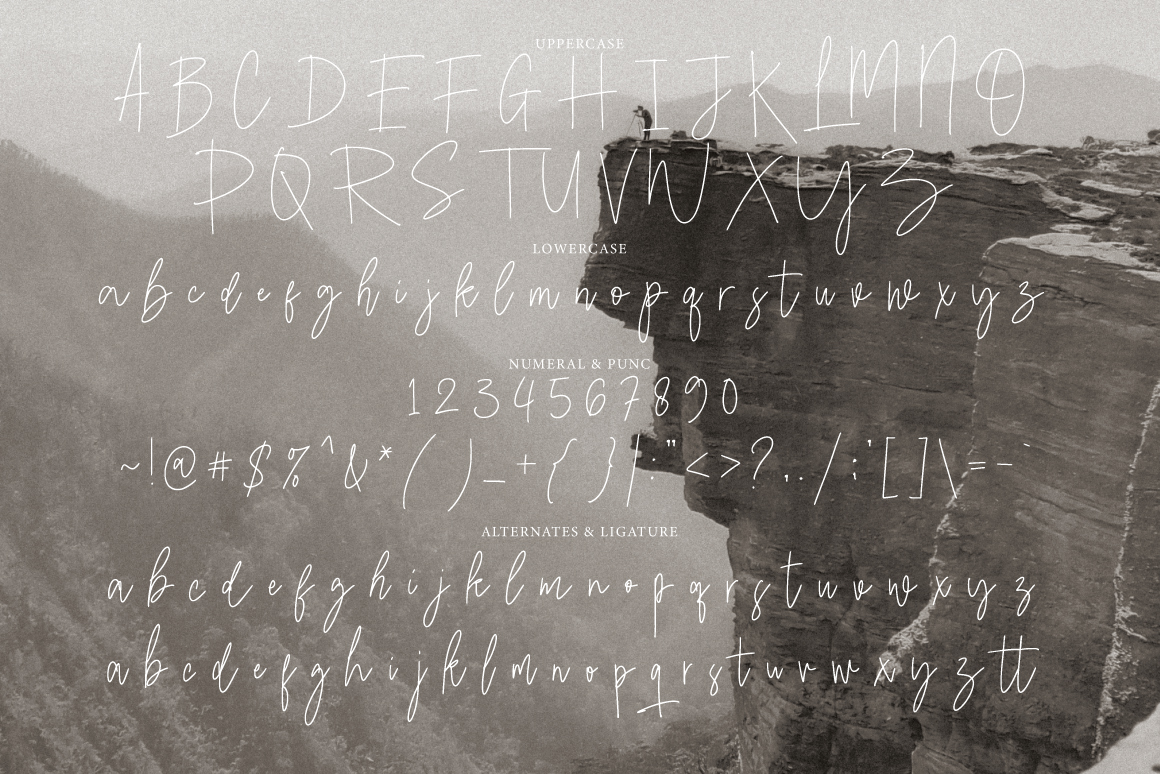 UPPERCASE
A B C D E F G H I J K L M N O
P Q R S T U V W X Y Z
LOWERCASE
a b c d e f g h i j k l m n o p q r s t u v w x y z
NUMERAL & PUNC
1 2 3 4 5 6 7 8 9 0
~ ! @ # $ % ^ & * ( ) _ + { } | : " < > ? , . / ; ' [ ] \ = - `
ALTERNATES & LIGATURE
a b c d e f g h i j k l m n o p q r s t u v w x y z
a b c d e f g h i j k l m n o p q r s t u v w x y z tt